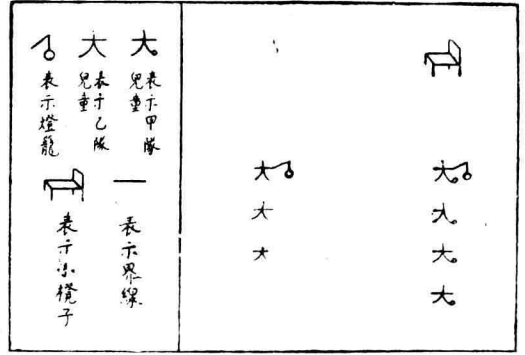 表示甲隊
兒童
表示乙隊
兒童
表示燈籠
表示界線
表示凳子